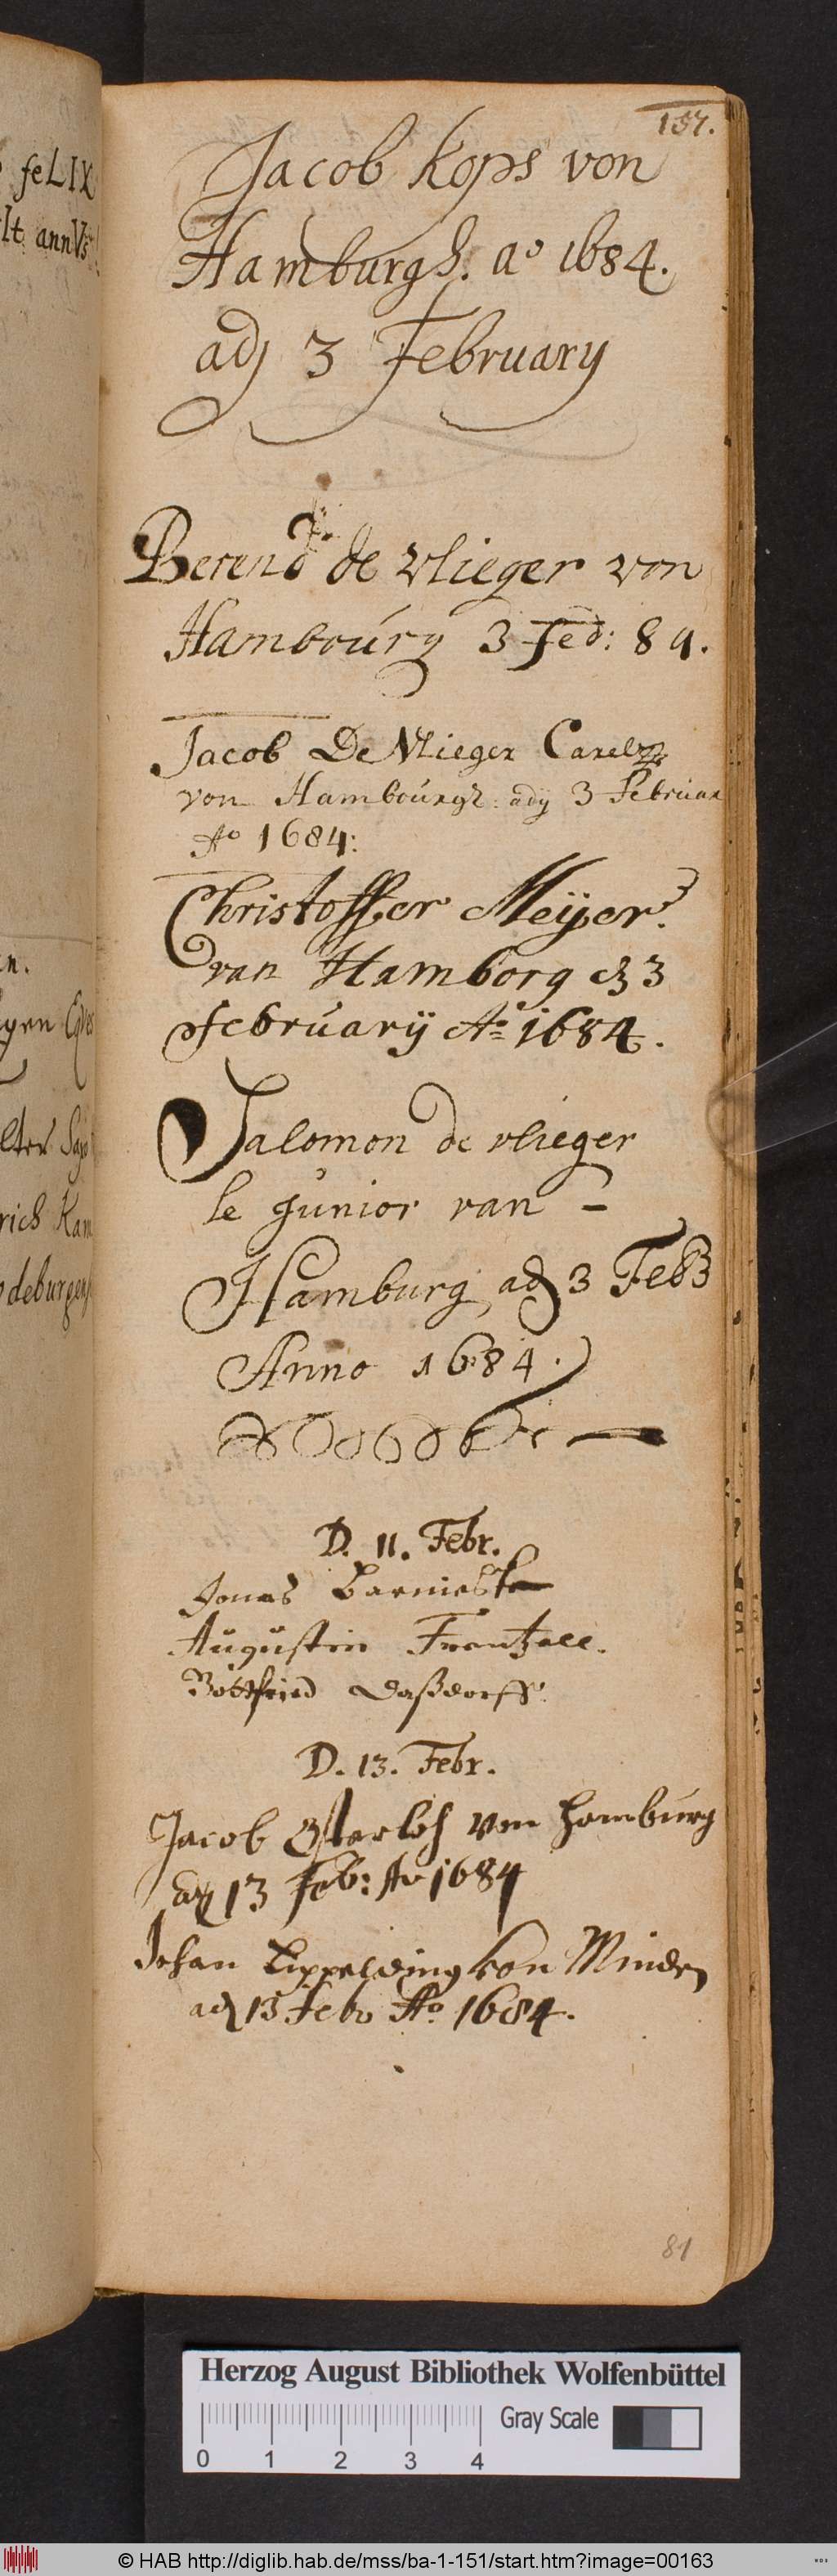 feLIX
It annVs
n.
ygen
ltes
rich Kam
deburgens
157.
Jacob Kops von
Hamburgh. ao 1684.
adj 3 February
Berend de vlieger von
Hambourg 3 feb: 84.
Jacob De Vlieger Carelz
von Hambourgh: adij 3 Februar
Ao 1684:
Christoffer Meijer.
van Hamborg d 3
februarij Ao 1684.
Salomon de vlieger
le Junior van -
Hamburg, adj 3 FebB
Anno 1684.
D. 11. Febr.
Jonas
Augustin Frantzell.
Gottfried Daßdorff.
D. 13. Febr.
Jacob Osterloh von Hamburg
adj 13 Feb: Ao 1684
Johan Lippelding von Minden
adj 13 febr Ao 1684.
81
Herzog August Bibliothek Wolfenbüttel
Gray Scale
0 1 2 3 4
© HAB http://diglib.hab.de/mss/ba-1-151/start.htm?image=00163